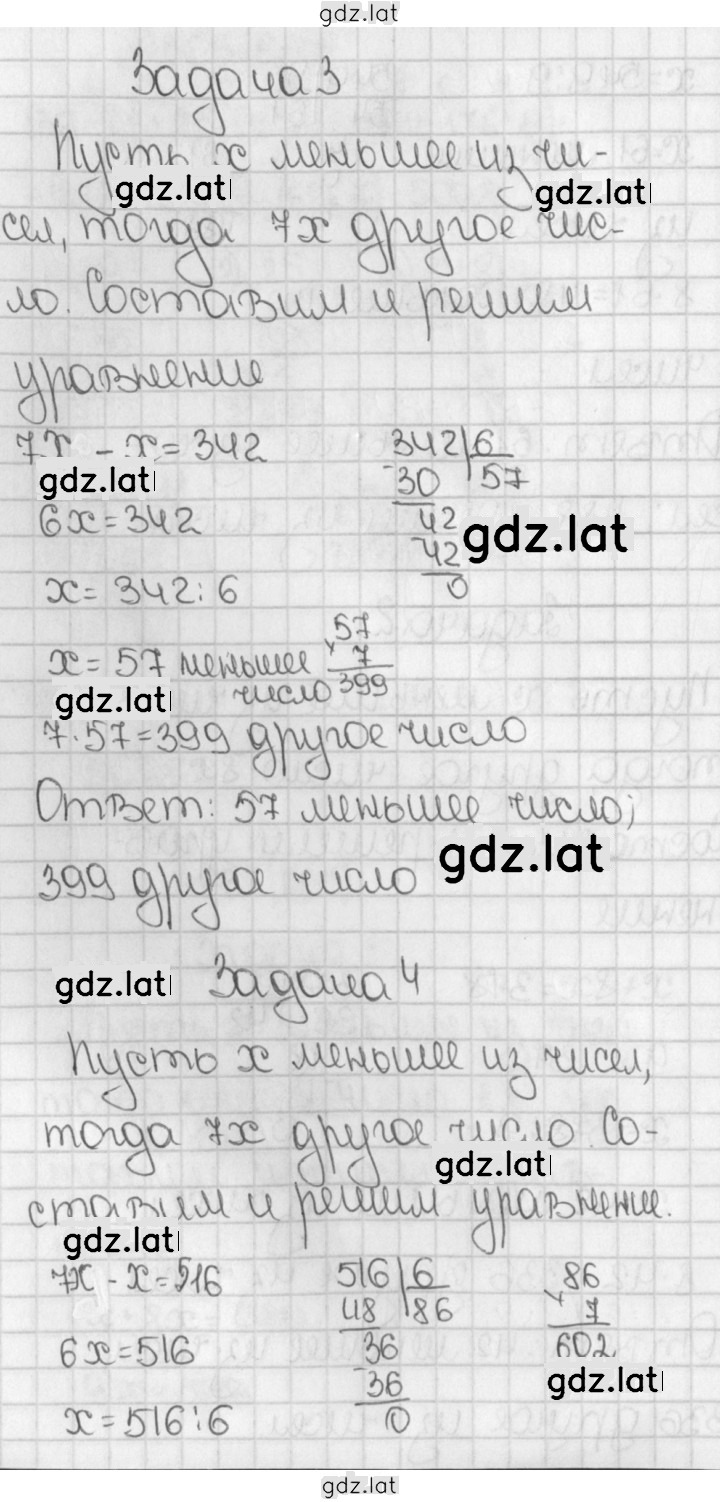 gdz.lat
Задача 3
Пусть x меньшее из чи-
gdz.lat gdz.lat
сел, тогда 7x другое чис-
ло. Составим и решим
уравнение
7x - x = 342
342 | 6
gdz.lat
- 30 57
6x = 342
42
- 42
gdz.lat
0
x = 342 : 6
57
x 7
x = 57 меньшее
число
399
gdz.lat
7 · 57 = 399 другое число
Ответ: 57 меньшее число;
399 другое число
gdz.lat
gdz.lat
Задача 4
Пусть x меньшее из чисел,
тогда 7x другое число. Со-
gdz.lat
ставим и решим уравнение.
gdz.lat
7x - x = 516
516 | 6
- 48 86
86
x 7
602
6x = 516
36
- 36
0
gdz.lat
x = 516 : 6
gdz.lat